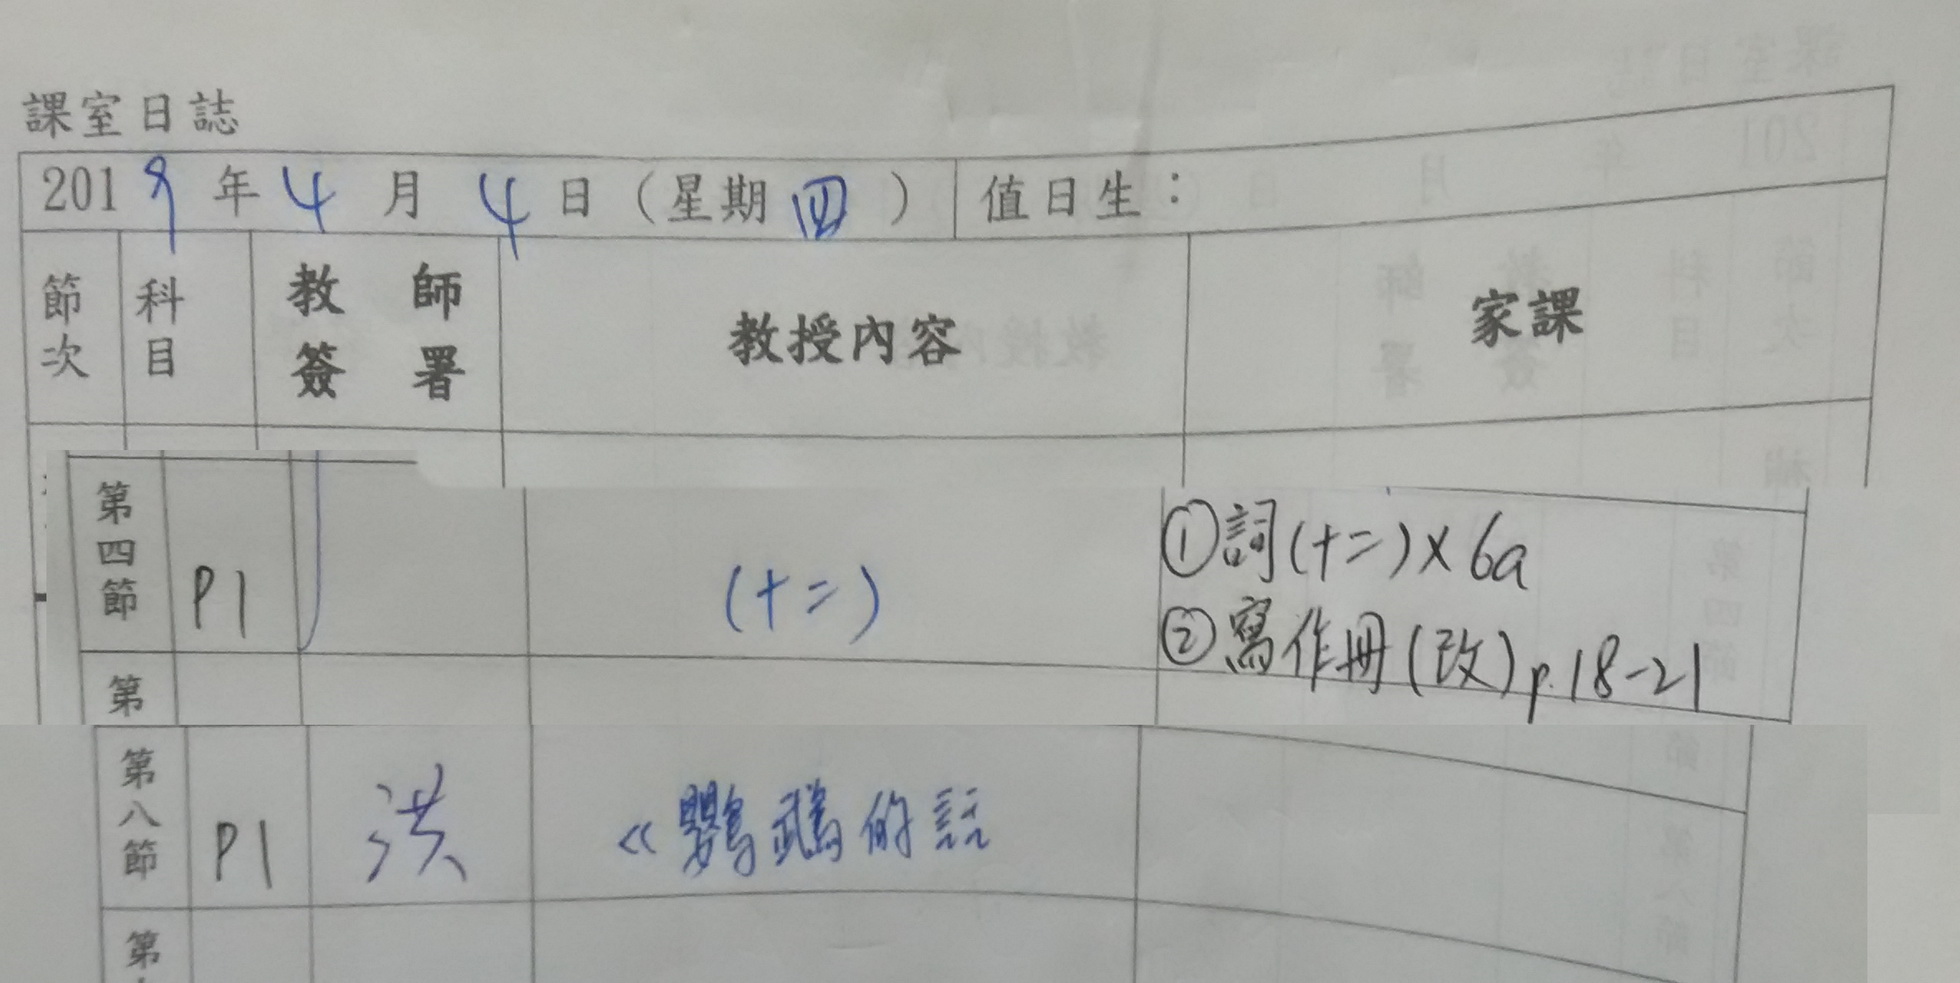 課室日誌
2019年4月4日(星期四) 值日生：
節次 科目 教師簽署 教授內容 家課
第四節 P1 (十二) ①詞(十二)×6a
②寫作冊(改)p.18-21
第
第八節 P1 洪 《鸚鵡的話
第